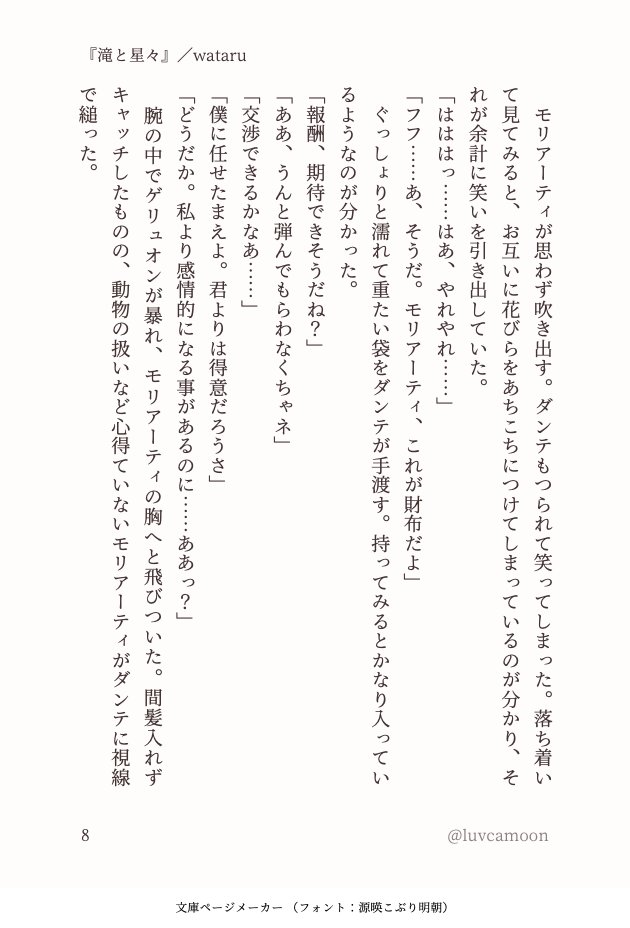 『滝と星々』／wataru
　モリアーティが思わず吹き出す。ダンテもつられて笑ってしまった。落ち着い
て見てみると、お互いに花びらをあちこちにつけてしまっているのが分かり、そ
れが余計に笑いを引き出していた。
「はははっ……はあ、やれやれ……」
「フフ……あ、そうだ。モリアーティ、これが財布だよ」
　ぐっしょりと濡れて重たい袋をダンテが手渡す。持ってみるとかなり入ってい
るようなのが分かった。
「報酬、期待できそうだね？」
「ああ、うんと弾んでもらわなくちゃネ」
「交渉できるかなあ……」
「僕に任せたまえよ。君よりは得意だろうさ」
「どうだか。私より感情的になる事があるのに……ああっ？」
　腕の中でゲリュオンが暴れ、モリアーティの胸へと飛びついた。間髪入れず
キャッチしたものの、動物の扱いなど心得ていないモリアーティがダンテに視線
で縋った。
8
@luvcamoon
文庫ページメーカー（フォント：源暎こぶり明朝）